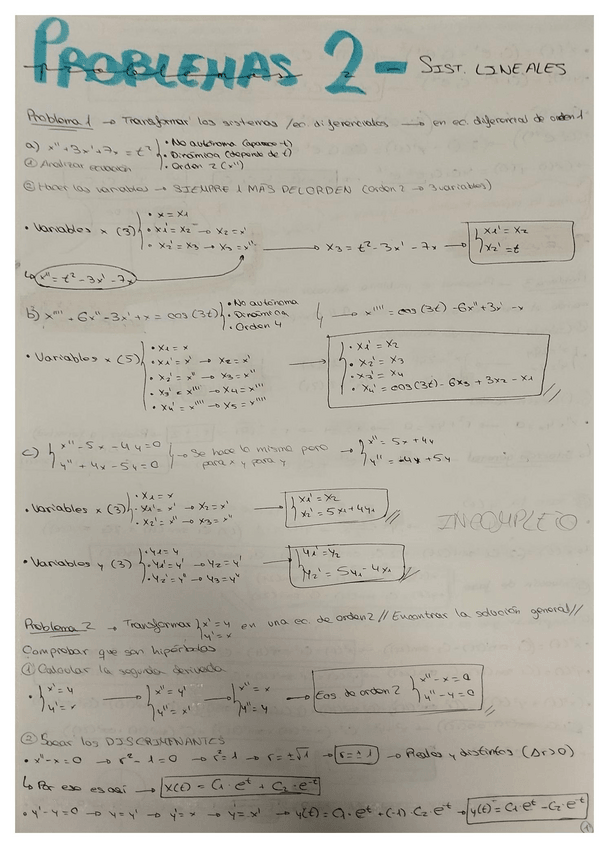 PROBLEMAS 2 - SIST. LINEALES
Problema 1 → Transformar los sistemas /ec. diferenciales → en ec. diferencial de orden 1
a) x'' + 3x' + 7x = t²
• No autónoma (aparece t)
• Dinámica (depende de t)
• Orden 2 (x'')
① Analizar ecuación
② Hacer las variables → SIEMPRE 1 MÁS DEL ORDEN (orden 2 → 3 variables)
• Variables x (3)
• x = x1
• x1' = x2 → x2 = x'
• x2' = x3 → x3 = x'' → x3 = t² - 3x' - 7x → x1' = x2
x2' = t
↳ x'' = t² - 3x' - 7x
b) x'''' + 6x'' - 3x' + x = cos(3t)
• No autónoma
• Dinámica
• Orden 4
→ x'''' = cos(3t) - 6x'' + 3x' - x
• Variables x (5)
• x1 = x
• x1' = x' → x2 = x'
• x2' = x'' → x3 = x''
• x3' = x''' → x4 = x'''
• x4' = x'''' → x5 = x''''
• x1' = x2
• x2' = x3
• x3' = x4
• x4' = cos(3t) - 6x3 + 3x2 - x1
c) x'' - 5x - 4y = 0
y'' + 4x - 5y = 0
→ Se hace lo mismo pero
para x y para y
→ x'' = 5x + 4y
y'' = -4x + 5y
• Variables x (3)
• x1 = x
• x1' = x' → x2 = x'
• x2' = x'' → x3 = x''
x1' = x2
x2' = 5x1 + 4y1
INCOMPLETO
• Variables y (3)
• y1 = y
• y1' = y' → y2 = y'
• y2' = y'' → y3 = y''
y1' = y2
y2' = 5y1 - 4x1
Problema 2 → Transformar x' = y
y' = x
en una ec. de orden 2 // Encontrar la solución general //
Comprobar que son hipérbolas
① Calcular la segunda derivada
• x' = y
y' = x
→ x'' = y'
y'' = x'
→ x'' = x
y'' = y
→ Ecs de orden 2
x'' - x = 0
y'' - y = 0
② Sacar los DISCRIMENANTES
• x'' - x = 0 → r² - 1 = 0 → r² = 1 → r = ±√1 → r = ± 1 → Reales y distintos (Δr > 0)
↳ Por eso es así → x(t) = C1 · e^t + C2 · e^-t
• y' - y = 0 → y = y' → y' = x → y = x' → y(t) = C1 · e^t + (-1) · C2 · e^-t → y(t) = C1 · e^t - C2 · e^-t
①